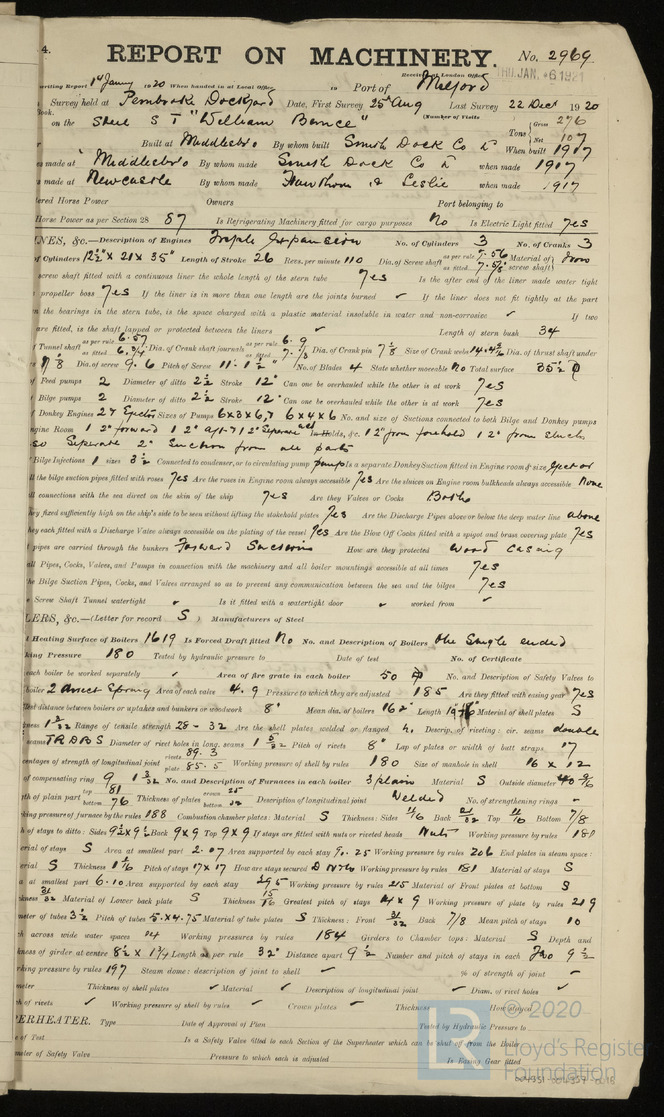 4. REPORT ON MACHINERY. No. 2969.
Received at London Office THU. JAN. 6 1921
writing Report 1st Jany 1920 When handed in at Local Office 19 Port of Milford
Survey held at Pembroke Dockyard Date, First Survey 25th Aug Last Survey 22 Dect 1920
Book. (Number of Visits
on the Steel S T "William Bunce" Tons { Gross 276
Net 107
Built at Middlesbro By whom built Smith Dock Co Ld When built 1917
es made at Middlesbro By whom made Smith Dock Co Ld when made 1917
s made at Newcastle By whom made Hawthorn & Leslie when made 1917
tered Horse Power Owners Port belonging to
Horse Power as per Section 28 87 Is Refrigerating Machinery fitted for cargo purposes No Is Electric Light fitted Yes
INES, &c.—Description of Engines Triple Expansion No. of Cylinders 3 No. of Cranks 3
of Cylinders 12½" x 21 x 35" Length of Stroke 26 Revs. per minute 110 Dia. of Screw shaft as per rule 7.56 as fitted 7.5/8 Material of screw shaft
screw shaft fitted with a continuous liner the whole length of the stern tube Yes Is the after end of the liner made water tight
propeller boss Yes If the liner is in more than one length are the joints burned ✓ If the liner does not fit tightly at the part
n the bearings in the stern tube, is the space charged with a plastic material insoluble in water and non-corrosive ✓ If two
are fitted, is the shaft lapped or protected between the liners ✓ Length of stern bush 34
f Tunnel shaft as per rule 6.57 as fitted 6.3/4 Dia. of Crank shaft journals as per rule 6.9 as fitted 7.1/8 Dia. of Crank pin 7 1/8 Size of Crank webs Dia. of thrust shaft under
7/8 Dia. of screw 9.6 Pitch of Screw 11.1½" No. of Blades 4 State whether moveable No Total surface 35½
f Feed pumps 2 Diameter of ditto 2½ Stroke 12" Can one be overhauled while the other is at work Yes
f Bilge pumps 2 Diameter of ditto 2½ Stroke 12" Can one be overhauled while the other is at work Yes
of Donkey Engines Sizes of Pumps 6x8x6,7 6x4x6 No. and size of Suctions connected to both Bilge and Donkey pumps
ngine Room 1 2" forward 1 2" aft In Holds, &c. 1 2" from forehold 1 2" from
so Separate 2" Suction from all parts
Bilge Injections 1 sizes 3½ Connected to condenser, or to circulating pump pump Is a separate Donkey Suction fitted in Engine room & size Ejector
ll the bilge suction pipes fitted with roses Yes Are the roses in Engine room always accessible Yes Are the sluices on Engine room bulkheads always accessible None
ll connections with the sea direct on the skin of the ship Yes Are they Valves or Cocks Both
hey fixed sufficiently high on the ship's side to be seen without lifting the stokehold plates Yes Are the Discharge Pipes above or below the deep water line above
hey each fitted with a Discharge Valve always accessible on the plating of the vessel Yes Are the Blow Off Cocks fitted with a spigot and brass covering plate Yes
pipes are carried through the bunkers Forward Suctions How are they protected wood casing
all Pipes, Cocks, Valves, and Pumps in connection with the machinery and all boiler mountings accessible at all times Yes
he Bilge Suction Pipes, Cocks, and Valves arranged so as to prevent any communication between the sea and the bilges Yes
e Screw Shaft Tunnel watertight ✓ Is it fitted with a watertight door ✓ worked from ✓
LERS, &c.—(Letter for record S ) Manufacturers of Steel
l Heating Surface of Boilers 1619 Is Forced Draft fitted No No. and Description of Boilers One Single ended
king Pressure 180 Tested by hydraulic pressure to Date of test No. of Certificate
each boiler be worked separately ✓ Area of fire grate in each boiler 50 No. and Description of Safety Valves to
boiler 2 direct Spring Area of each valve 4.9 Pressure to which they are adjusted 185 Are they fitted with easing gear Yes
llest distance between boilers or uptakes and bunkers or woodwork 8" Mean dia. of boilers 162" Length Material of shell plates S
kness 1 5/32 Range of tensile strength 28-32 Are the shell plates welded or flanged Descrip. of riveting: cir. seams double
seams TRDBS Diameter of rivet holes in long. seams 1 5/32 Pitch of rivets 8" Lap of plates or width of butt straps 17
centages of strength of longitudinal joint rivets 89.3 plate 85.5 Working pressure of shell by rules 180 Size of manhole in shell 16 x 12
of compensating ring No. and Description of Furnaces in each boiler 3 plain Material S Outside diameter
th of plain part top 81 bottom 76 Thickness of plates crown bottom Description of longitudinal joint Welded No. of strengthening rings -
king pressure of furnace by the rules 188 Combustion chamber plates: Material S Thickness: Sides 11/16 Back 21/32 Top 11/16 Bottom 7/8
h of stays to ditto: Sides 9½x9½ Back 9x9 Top 9x9 If stays are fitted with nuts or riveted heads Nuts Working pressure by rules 181
erial of stays S Area at smallest part 2.07 Area supported by each stay Working pressure by rules 206 End plates in steam space:
erial S Thickness 1 1/16 Pitch of stays 17x17 How are stays secured D Nuts Working pressure by rules 181 Material of stays S
a at smallest part 6.10 Area supported by each stay 295 Working pressure by rules 215 Material of Front plates at bottom S
kness 31/32 Material of Lower back plate S Thickness 15/16 Greatest pitch of stays 14 x 9 Working pressure of plate by rules 219
meter of tubes 3½ Pitch of tubes 5.x4.75 Material of tube plates S Thickness: Front 31/32 Back 7/8 Mean pitch of stays 10
h across wide water spaces 14 Working pressures by rules 184 Girders to Chamber tops: Material S Depth and
kness of girder at centre 8½ x 1¾ Length as per rule 32" Distance apart 9½ Number and pitch of stays in each Two 9½
king pressure by rules 197 Steam dome: description of joint to shell ✓ % of strength of joint ✓
meter Thickness of shell plates ✓ Material ✓ Description of longitudinal joint ✓ Diam. of rivet holes ✓
h of rivets ✓ Working pressure of shell by rules ✓ Crown plates ✓ Thickness How stayed
PERHEATER. Type Date of Approval of Plan Tested by Hydraulic Pressure to
e of Test Is a Safety Valve fitted to each Section of the Superheater which can be shut off from the Boiler
meter of Safety Valve Pressure to which each is adjusted Is Easing Gear fitted
© 2020
LR Lloyd's Register
Foundation